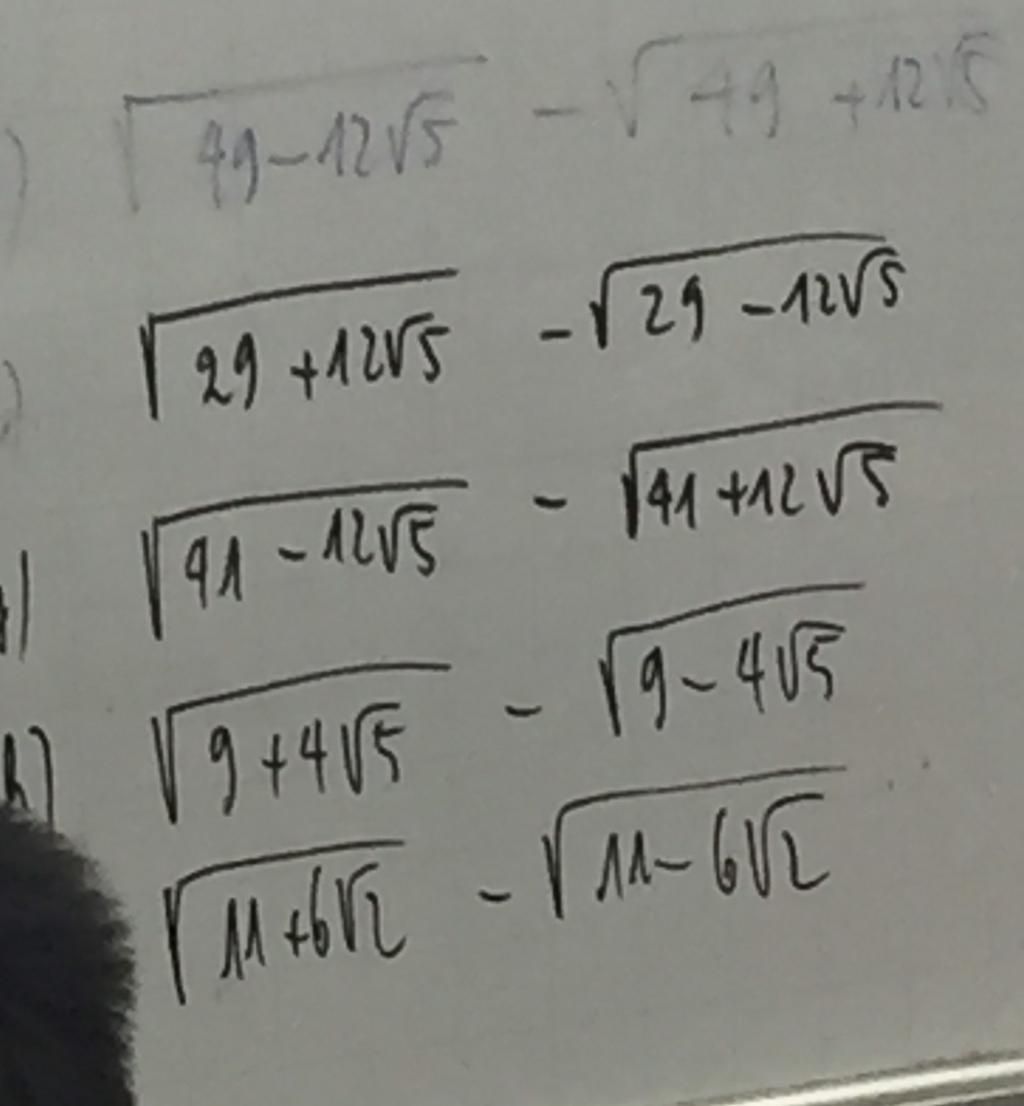 ) √49-12√5 - √49+12√5
) √29+12√5 - √29-12√5
) √41-12√5 - √41+12√5
h) √9+4√5 - √9-4√5
√11+6√2 - √11-6√2